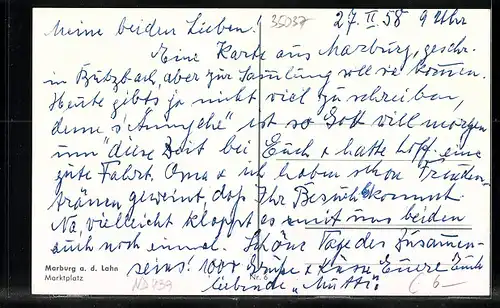 35037
27. II. 58 9 Uhr
Meine beiden Lieben!
Eine Karte aus Marburg, geschr.
in Butzbach, aber zur Samlung soll sie kommen.
Heute gibts ja nicht viel zu schreiben,
denn ist so Gott will morgen
um diese Zeit bei Euch + hatte hoff. eine
gute Fahrt. Oma + ich haben schon Freuden-
tränen geweint, daß Ihr Besuch bekommt.
Na, vielleicht klappt es mit uns beiden
auch noch einmal. Schöne Tage des Zusammen-
seins! 100x Grüße + Küsse Euere Euch
liebende "Mutti"
Marburg a. d. Lahn
Marktplatz
Nr. 6